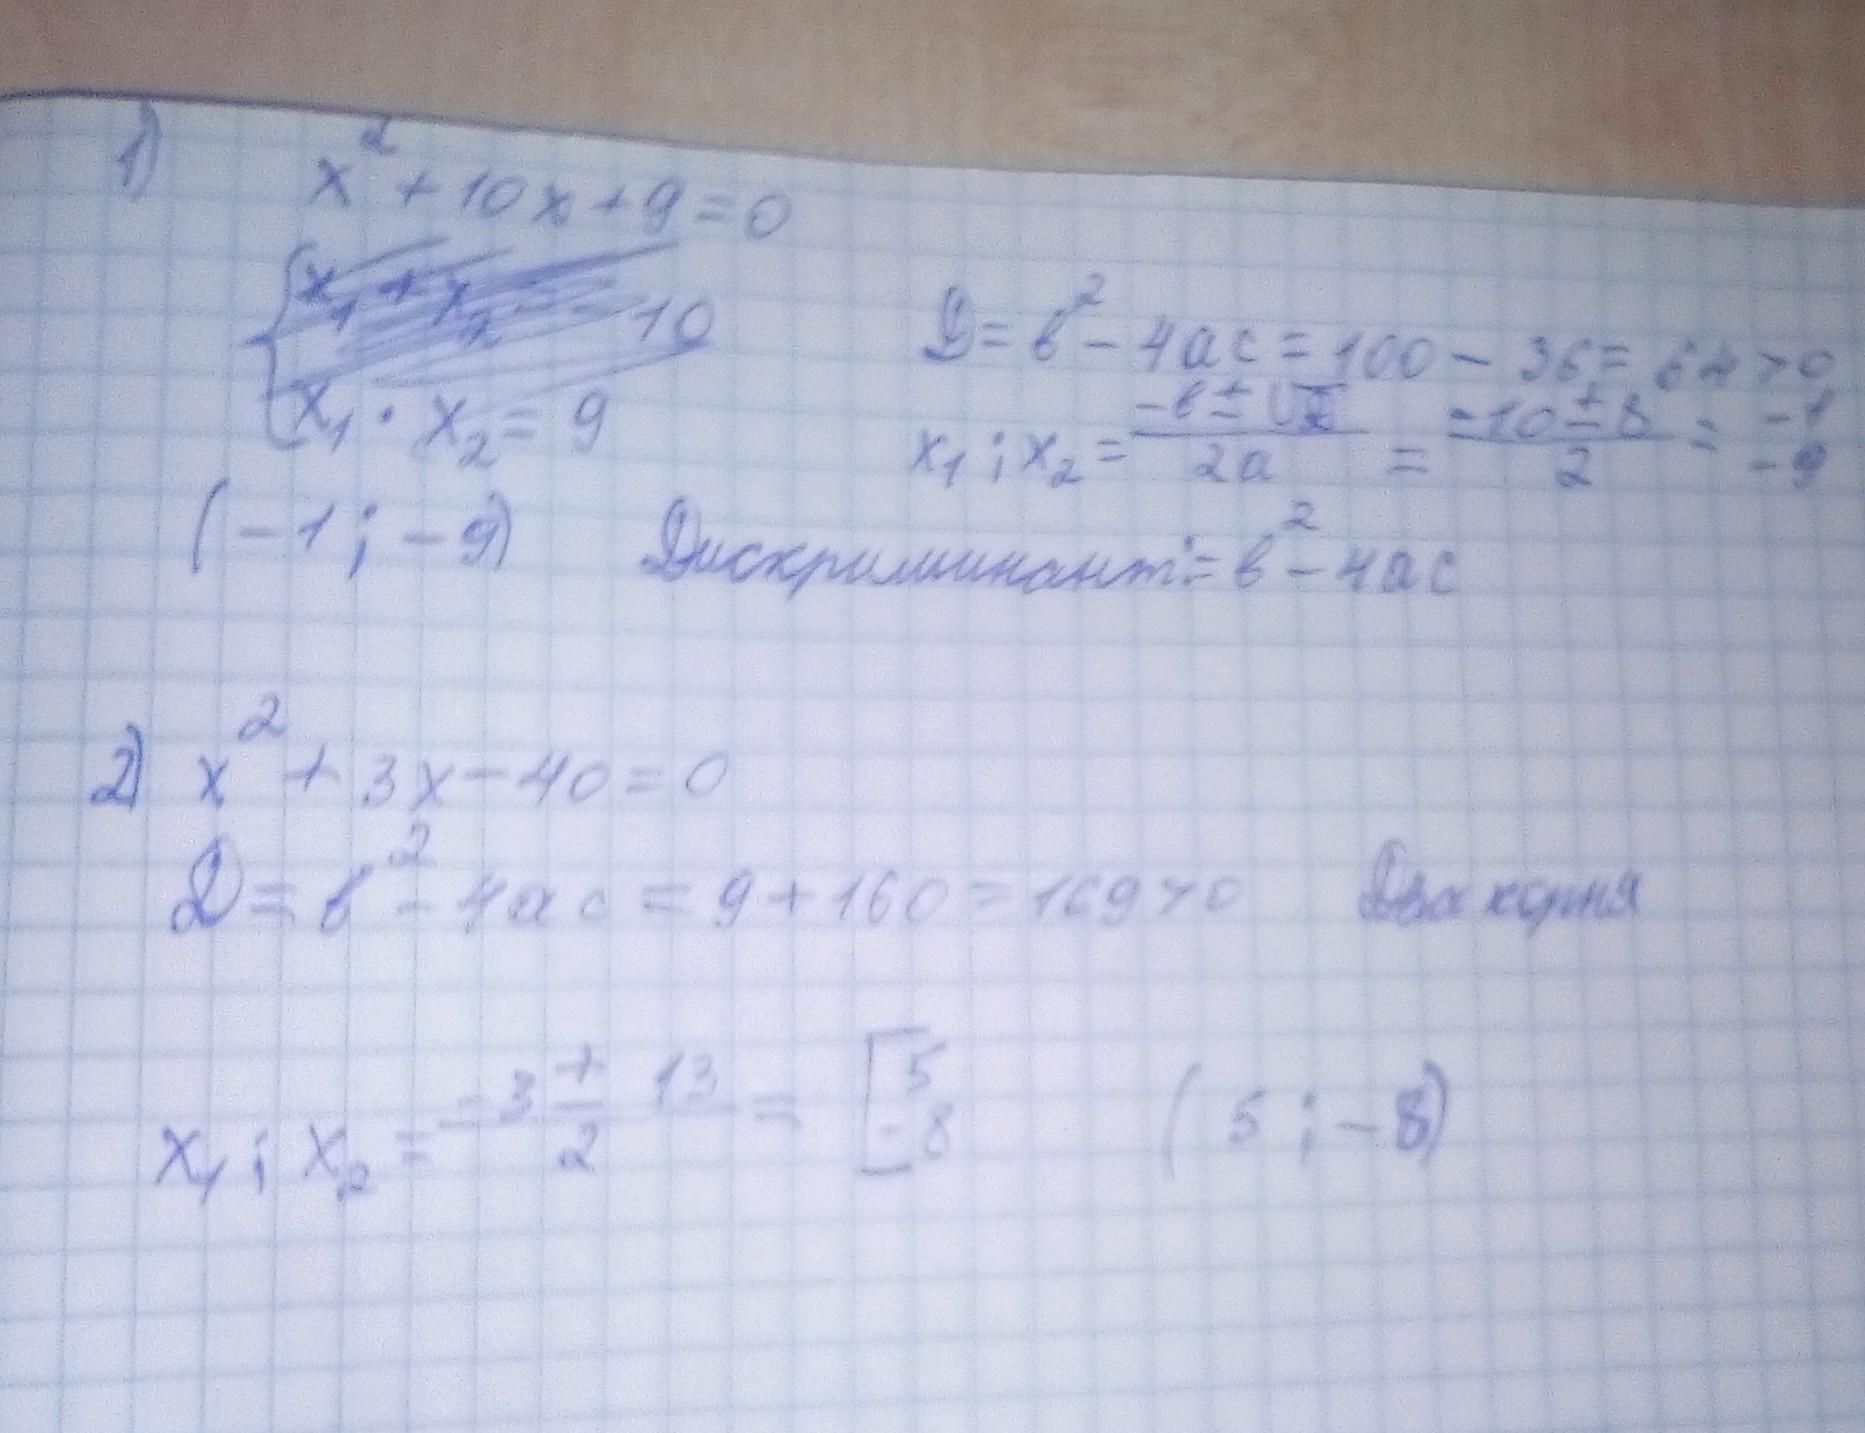 1) x² + 10x + 9 = 0
x₁ + x₂ = -10
x₁ · x₂ = 9
D = b² - 4ac = 100 - 36 = 64 > 0
x₁ ; x₂ = (-b ± √D)/2a = (-10 ± 8)/2 = -1 -9
(-1 ; -9)
Дискриминант = b² - 4ac
2) x² + 3x - 40 = 0
D = b² - 4ac = 9 + 160 = 169 > 0 Два корня
x₁ ; x₂ = (-3 ± 13)/2 = [5 -8 (5 ; -8)